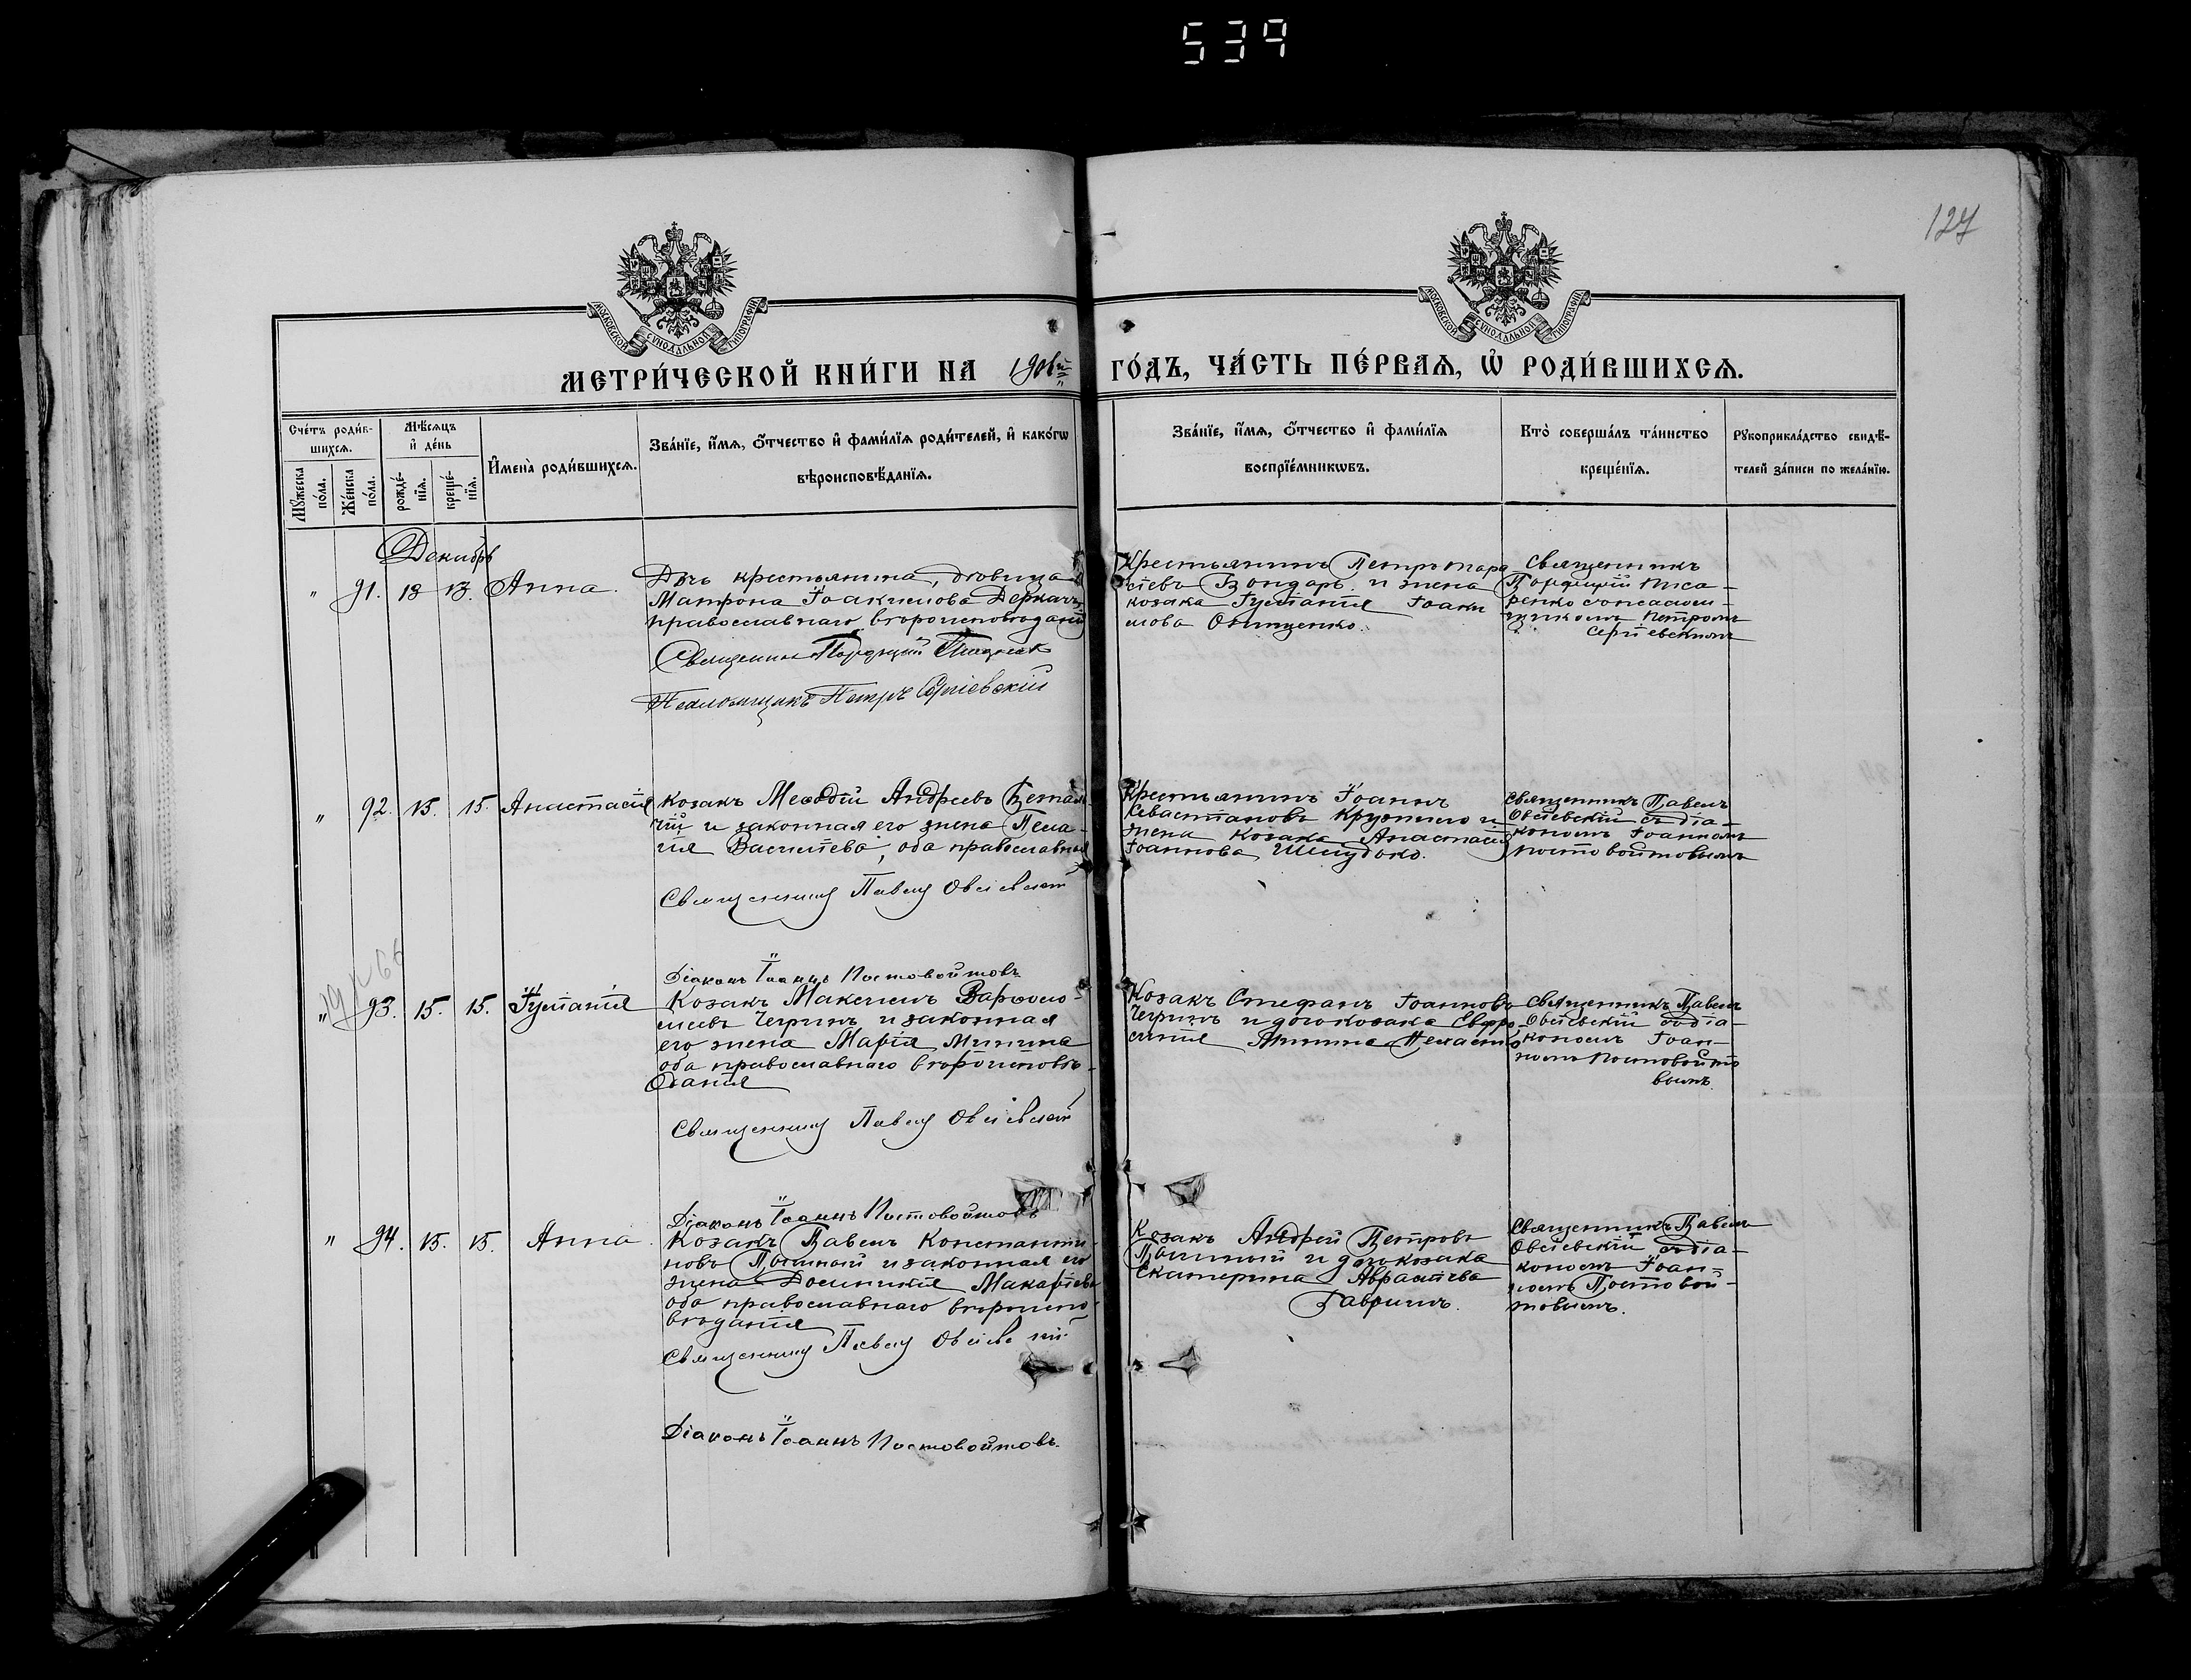 539
127
МОСКОВСКОЙ СѴНОДАЛЬНОЙ ТИПОГРАФІИ
МОСКОВСКОЙ СѴНОДАЛЬНОЙ ТИПОГРАФІИ
МЕТРИ́ЧЕСКОЙ КНИ́ГИ НА 1906й ГО́ДЪ, ЧА́СТЬ ПЕ́РВАѦ, Ѽ РОДИ́ВШИХСѦ.
Сче́тъ роди́в-
шихсѧ.
Мꙋ́жеска по́ла.
Же́нска по́ла.
Мѣ́сѧцъ
и҆ де́нь
рожде́-
нїѧ.
креще́-
нїѧ.
И҆мена̀ роди́вшихсѧ.
Зва́нїе, и҆́мѧ, ѻ҆́тчество и҆ фами́лїѧ роди́телей, и҆ како́гѡ
вѣроисповѣ́данїѧ.
Зва́нїе, и҆́мѧ, ѻ҆́тчество и҆ фами́лїѧ
воспрїе́мникѡвъ.
Кто̀ соверша́лъ та́инство
креще́нїѧ.
Рꙋкоприкла́дство свидѣ́-
телей за́писи по жела́нїю.
Декабрь
" 91. 13 13. Анна.
Дочь крестьянина, девица
Матрона Іоакимова Деркачъ,
православнаго вѣроисповѣданія
Священникъ Порфирій
Псаломщикъ Петръ Сергіевскій
Крестьянинъ Петръ Тара
сіевъ Бондарь и жена
козака Іуліанія Іоаки
мова Онищенко.
Священникъ
Порфирій Писа-
ренко съ псаломщ-
щикомъ Петромъ
Сергіевскимъ
" 92. 15. 15. Анастасія
Козакъ Меѳодій Андреевъ
чій и законная его жена Пела-
гія Васильева, оба православные
Священникъ Павелъ Овсіевскій
Діаконъ Іоаннъ Постовойтовъ
Крестьянинъ Іоаннъ
Севастіановъ и
жена козака Анастасія
Іоаннова Шелудько.
Священникъ Павелъ
Овсіевскій съ діа-
кономъ Іоанномъ
Постовойтовымъ
" 93. 15. 15. Іуліанія
Козакъ Максимъ Варѳоло-
меевъ Чегринъ и законная
его жена Марія Минина
оба православнаго вѣроисповѣ-
данія
Священникъ Павелъ Овсіевскій
Діаконъ Іоаннъ Постовойтовъ
Козакъ Стефанъ Іоанновъ
Чегринъ и дочь козака Евфро-
синія
Священникъ Павелъ
Овсіевскій съ діа-
кономъ Іоан-
номъ Постовойто
вымъ.
" 94. 15. 15. Анна
Козакъ Павелъ Константи-
новъ и законная его
жена Домникія Макаріева
оба православнаго вѣроиспо-
вѣданія
Священникъ Павелъ Овсіевскій
Діаконъ Іоаннъ Постовойтовъ.
Козакъ Андрей Петровъ
и дочь козака
Екатерина Авраміева
Гавришъ.
Священникъ Павелъ
Овсіевскій съ діа-
кономъ Іоан-
номъ Постовой-
товымъ.